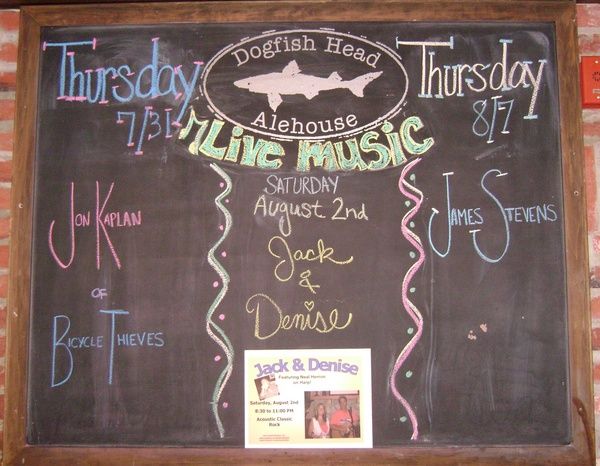 Thursday
7/31
Jon Kaplan
of
Bicycle Thieves
Dogfish Head
Alehouse
Live music
SATURDAY
August 2nd
Jack
&
Denise
Jack & Denise
Featuring Neal Herron
on Harp!
Saturday, August 2nd
8:30 to 11:00 PM
Acoustic Classic
Rock
Thursday
8/7
James Stevens